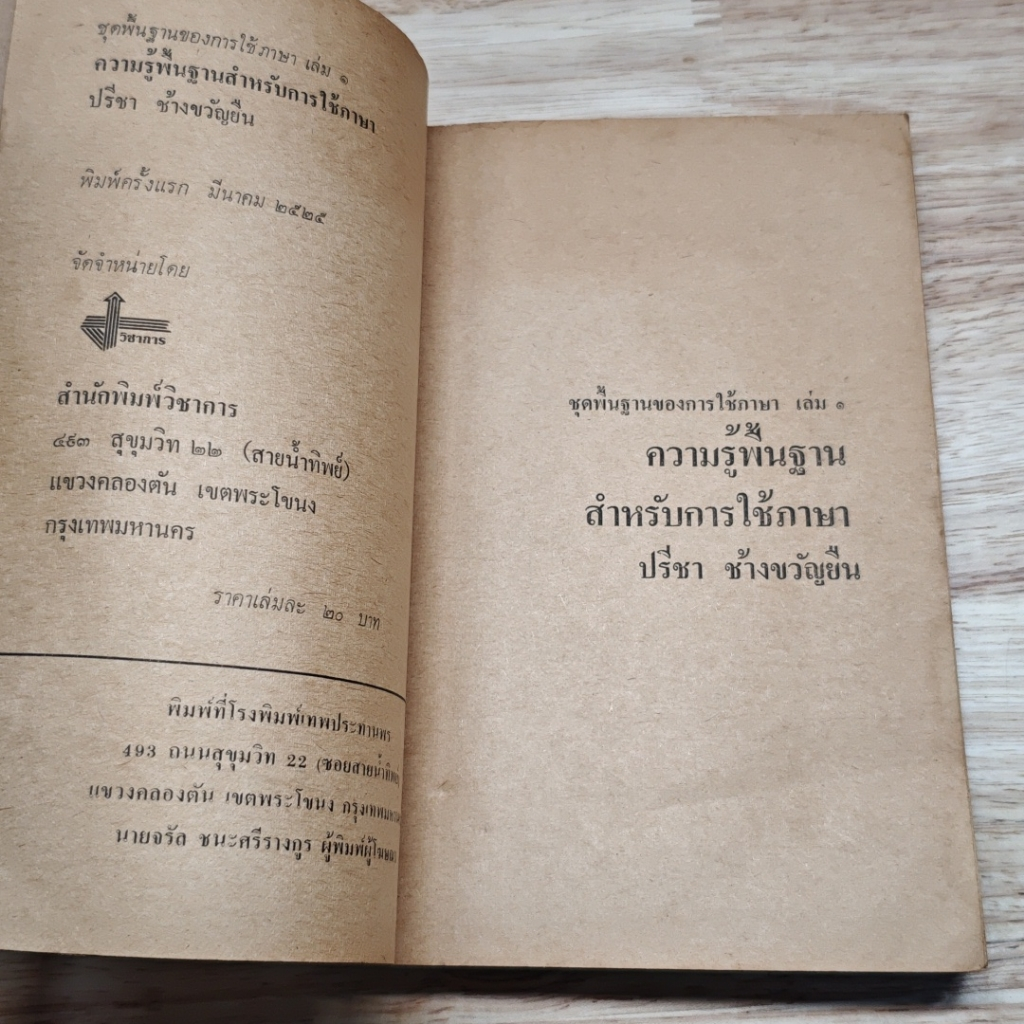 ชุดพื้นฐานของการใช้ภาษา เล่ม ๑
ความรู้พื้นฐานสำหรับการใช้ภาษา
ปรีชา ช้างขวัญยืน
พิมพ์ครั้งแรก มีนาคม ๒๕๒๕
จัดจำหน่ายโดย
วิชาการ
สำนักพิมพ์วิชาการ
๔๙๓ สุขุมวิท ๒๒ (สายน้ำทิพย์)
แขวงคลองตัน เขตพระโขนง
กรุงเทพมหานคร
ราคาเล่มละ ๒๐ บาท
พิมพ์ที่โรงพิมพ์เทพประทานพร
493 ถนนสุขุมวิท 22 (ซอยสายน้ำทิพย์
แขวงคลองตัน เขตพระโขนง กรุงเทพมหานคร
นายจรัล ชนะศรีรางกูร ผู้พิมพ์ผู้โฆษณา
ชุดพื้นฐานของการใช้ภาษา เล่ม ๑
ความรู้พื้นฐาน
สำหรับการใช้ภาษา
ปรีชา ช้างขวัญยืน